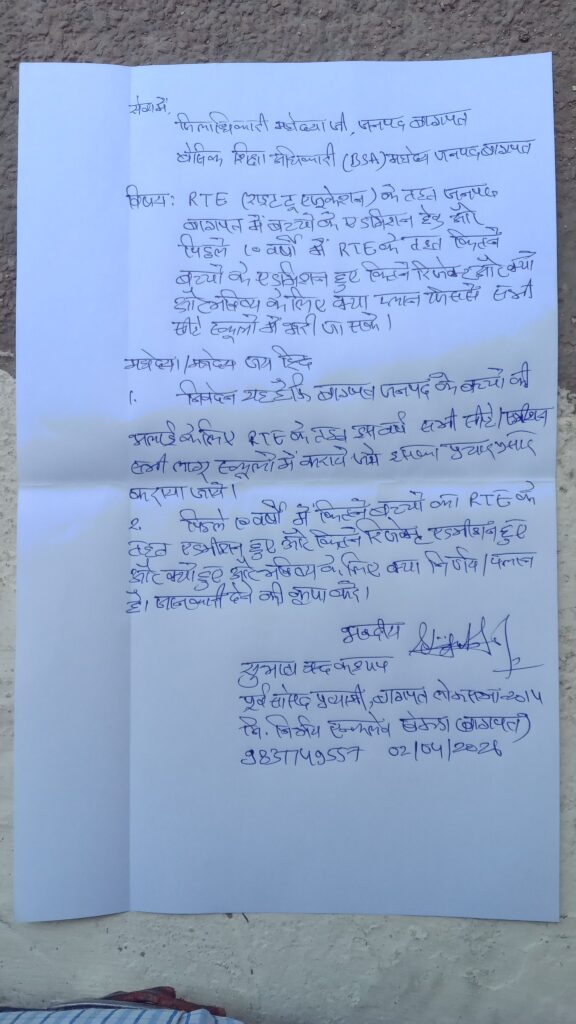 सेवा में,
जिलाधिकारी महोदया जी, जनपद बागपत
बेसिक शिक्षा अधिकारी (BSA) महोदय जनपद बागपत
विषय: RTE (राइट टू एजुकेशन) के तहत जनपद
बागपत में बच्चों के एडमिशन हेतु और
पिछले १० वर्षों में RTE के तहत कितने
बच्चों के एडमिशन हुए कितने रिजेक्ट और क्यों
और भविष्य के लिए क्या प्लान जिससे सभी
सीटें स्कूलों में भरी जा सकें।
महोदया/महोदय जय हिन्द
1. निवेदन यह है कि बागपत जनपद के बच्चों की
भलाई के लिए RTE के तहत इस वर्ष सभी सीटें/
सभी स्कूलों में कराये जाये इसका प्रचार प्रसार
कराया जाये।
2. पिछले १० वर्षों में कितने बच्चों का RTE के
तहत एडमीशन हुए और कितने रिजेक्ट एडमीशन हुए
और क्यों हुए और भविष्य के लिए क्या निर्णय/प्लान
है। जानकारी देने की कृपा करें।
भवदीय
सुभाष चन्द कश्यप
पूर्व सांसद प्रत्याशी, बागपत लोकसभा-2014
नि. एन्क्लेव खेकडा (बागपत)
9837749557 02/04/2026